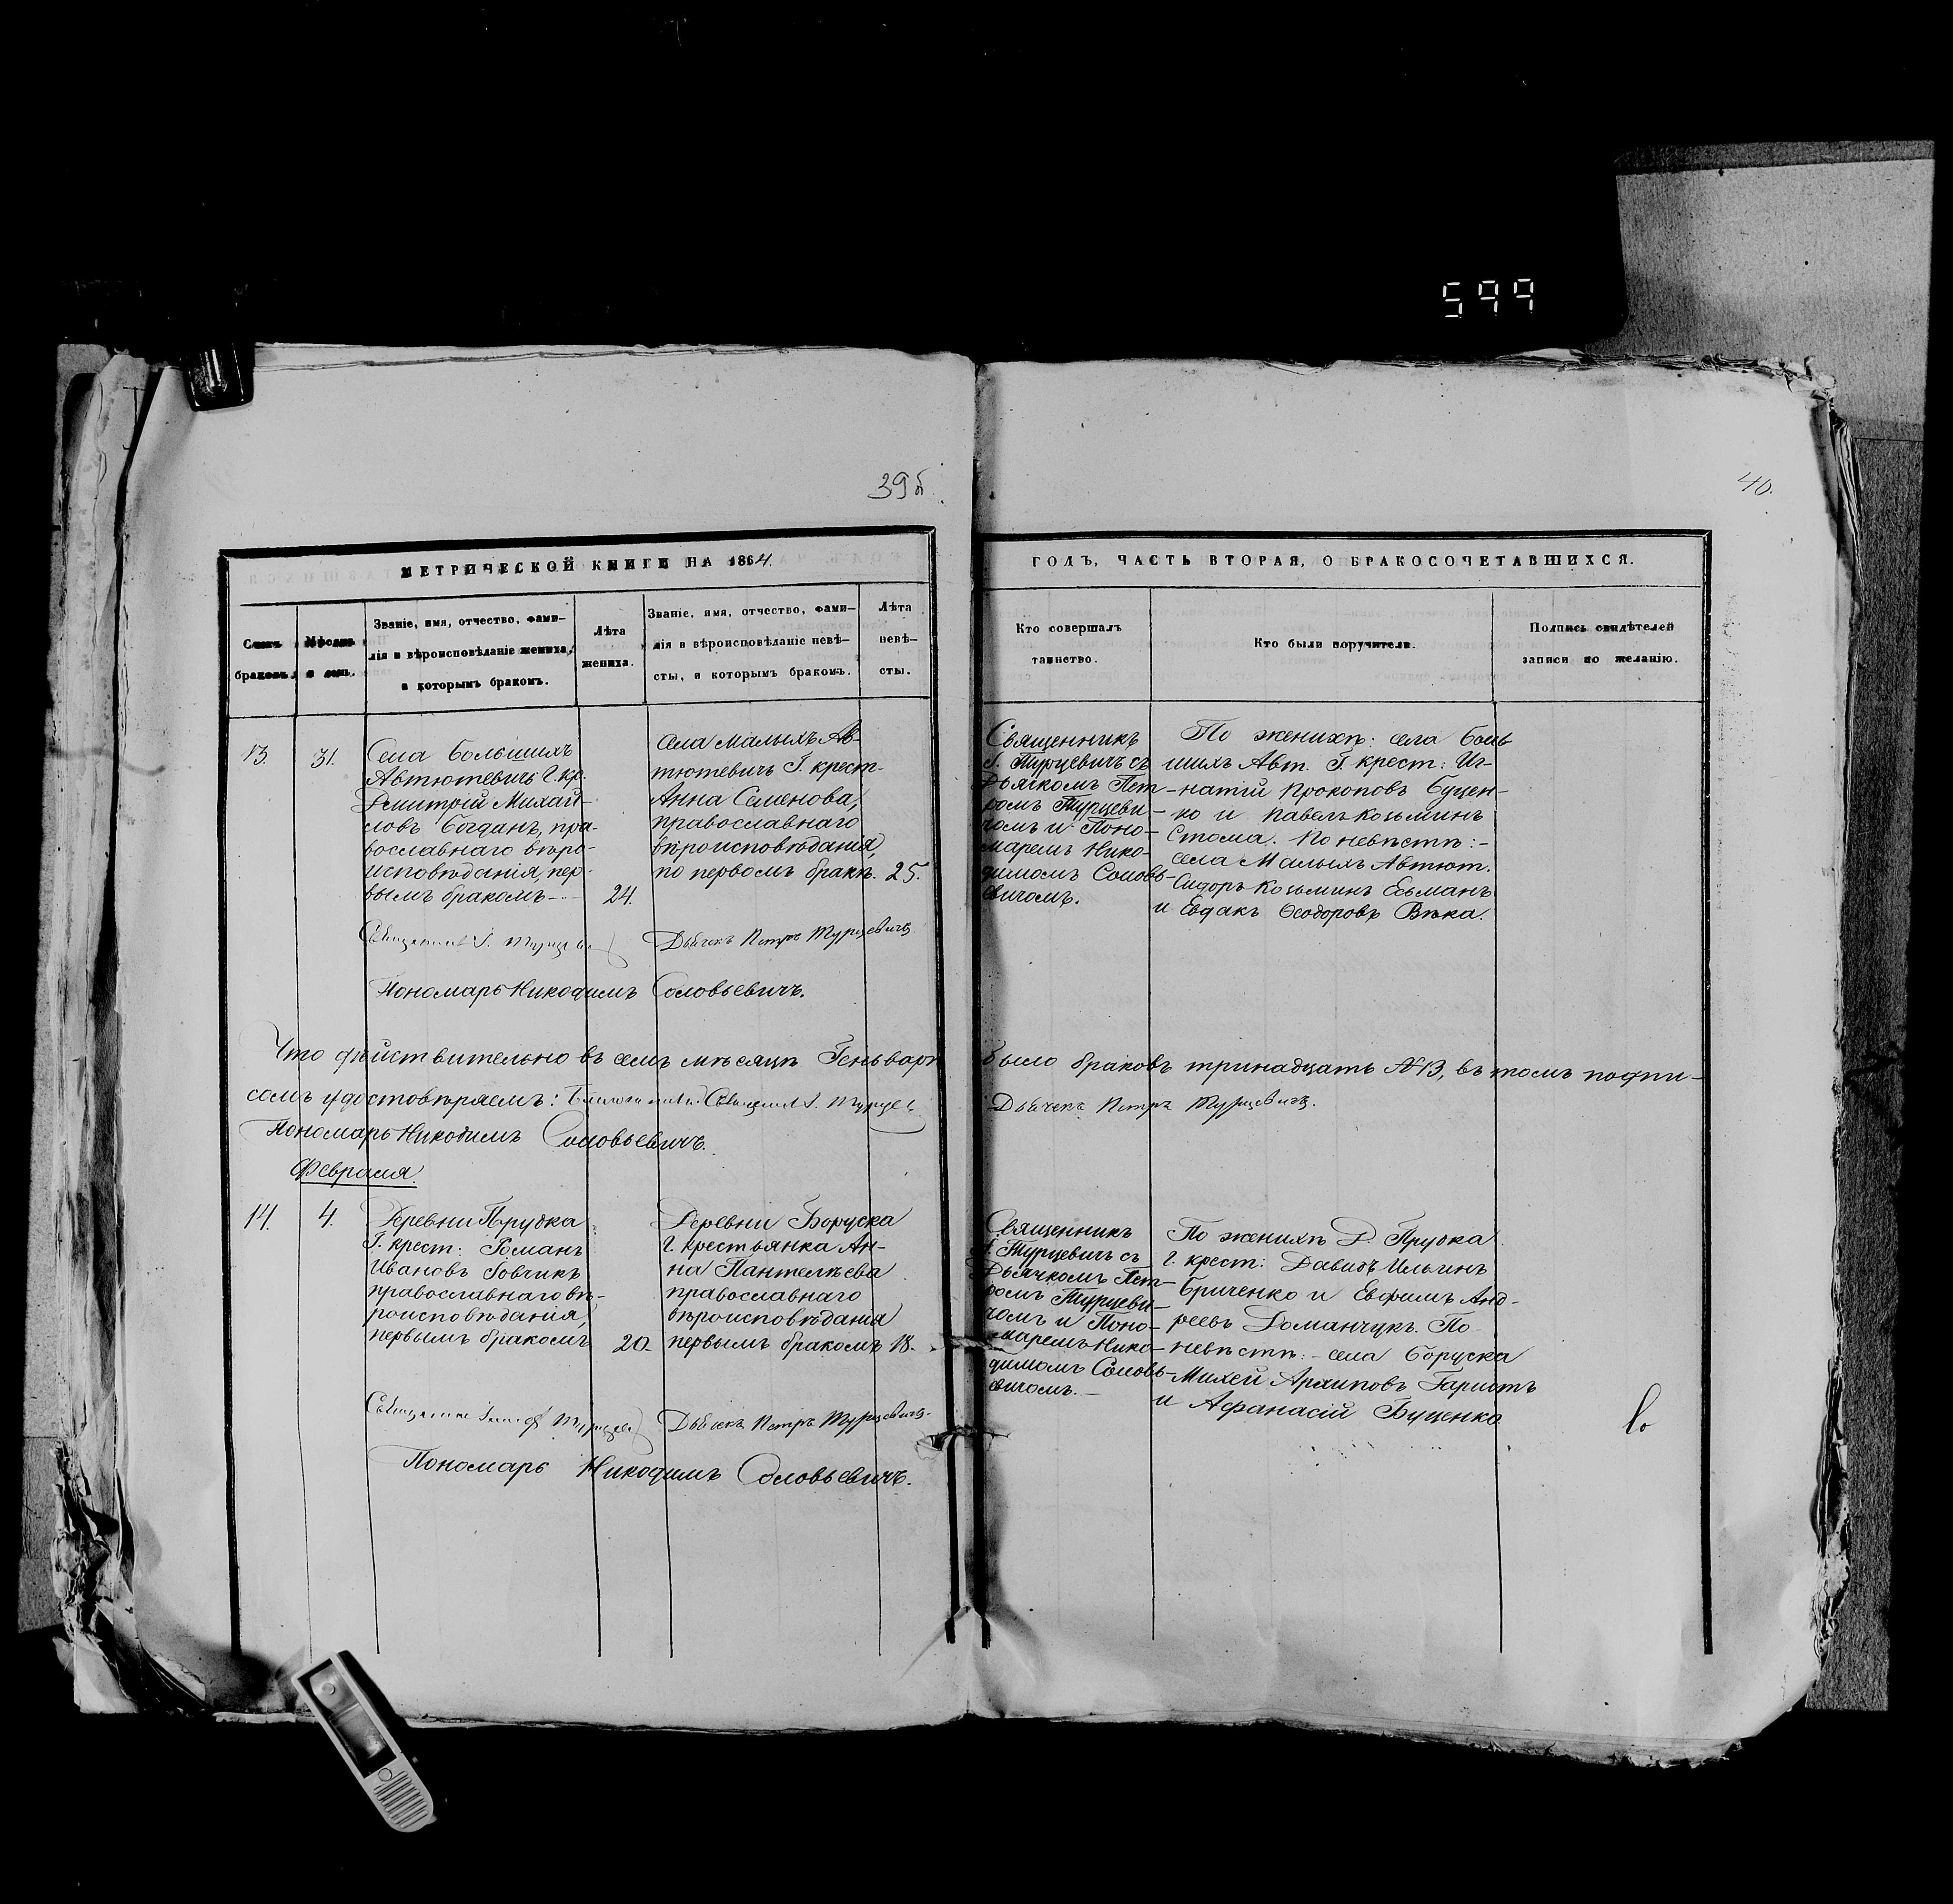 599
39б.
40.
МЕТРИЧЕСКОЙ КНИГИ НА 1864.
ГОДЪ, ЧАСТЬ ВТОРАЯ, О БРАКОСОЧЕТАВШИХСЯ.
Счетъ
браковъ.
Мѣсяцъ
и день.
Званіе, имя, отчество, фами-
лія и вѣроисповѣданіе жениха,
и которымъ бракомъ.
Лѣта
жениха.
Званіе, имя, отчество, фами-
лія и вѣроисповѣданіе невѣ-
сты, и которымъ бракомъ.
Лѣта
невѣ-
сты.
Кто совершалъ
таинство.
Кто были поручители.
Подпись свидѣтелей
записи по желанію.
13.
31.
Села Большихъ
Автютевичъ Г. кр.
Дмитрій Михай-
ловъ Богданъ, пра-
вославнаго вѣро-
исповѣданія, пер-
вымъ бракомъ -
24.
Села Малыхъ Ав-
тютевичъ Г. крест-
Анна Семенова,
православнаго
вѣроисповѣданія,
по первомъ бракѣ.
25.
Священникъ
І. Турцевичъ съ
Дьячкомъ Пет-
ромъ Турцеви-
чомъ и Поно-
маремъ Нико-
димомъ Соловь-
евичомъ.
По женихѣ: села Боль
шихъ Авт. Г. крест: Иг-
натій Прокоповъ Буцен-
ко и Павелъ Козьминъ
Стома. По невѣстѣ: -
села Малыхъ Автют.
Сидоръ Козьминъ Есьманъ
и Евдакъ Ѳеодоровъ Вѣка.
Священникъ І. Турцевичъ
Дьячекъ Петръ Турцевичъ.
Пономарь Никодимъ Соловьевичъ.
Что дѣйствительно въ семъ мѣсяцѣ Геньварѣ было браковъ тринадцать №13, въ томъ подпи-
сомъ удостовѣряемъ: Священникъ І. Турцевичъ Дьячекъ Петръ Турцевичъ.
Пономарь Никодимъ Соловьевичъ.
Февраля.
14.
4.
Деревни Прудка
Г. крест: Романъ
Ивановъ Бовчикъ
православнаго вѣ-
роисповѣданія,
первымъ бракомъ
20.
Деревни Боруска
Г. крестьянка Ан-
на Пантелѣева
православнаго
вѣроисповѣданія
первымъ бракомъ
18.
Священникъ
І. Турцевичъ съ
Дьячкомъ Пет-
ромъ Турцеви-
чомъ и Поно-
маремъ Нико-
димомъ Соловь-
евичомъ. -
По женихѣ Д. Прудка
Г. крест: Давидъ Ильинъ
Бриченко и Евфимъ Анд-
реевъ Доманчукъ. По
невѣстѣ: - села Боруска
Михей Архиповъ Гаристъ
и Афанасій Буценко
Священникъ Турцевичъ
Дьячекъ Петръ Турцевичъ.
Пономарь Никодимъ Соловьевичъ.